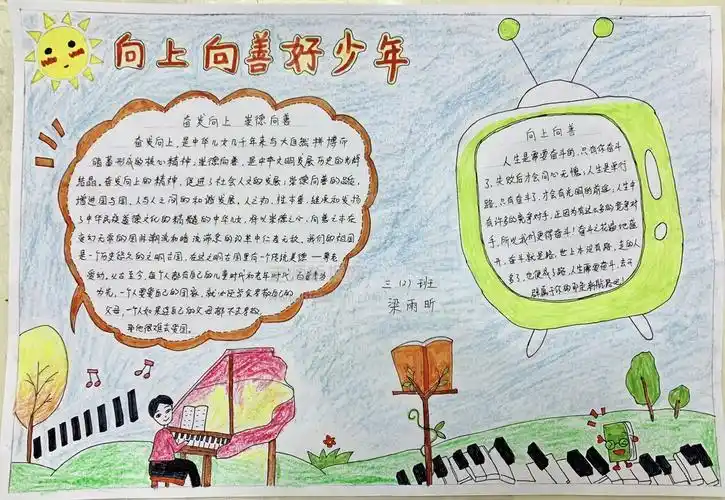 向上向善好少年
奋发向上 崇德向善
奋发向上,是中华儿女几千年来与大自然拼搏而
随着形成的核心精神,崇德向善,是中华文明发展历史的光辉
结晶。奋发向上的精神,促进了社会人文的发展;崇德向善的品
增进国与国、人与人之间的和谐发展。人之初,性本善,
了中华民族美德文化的精髓的中华儿女,
我们的祖国
是一个历史悠久的文明古国,在这文明古国里有一个传统美德
爱幼,从古至今,每个人都有自己的儿童时代和老年时代,百善孝为
为先,一个人要爱自己的国家,就必还学会孝敬自己的
父母,一个人如果连自己的父母都不去孝敬,
那他很难去爱国。
三(2)班
梁雨昕
向上向善
人生是需要奋斗的,只有你奋斗
了,失败后才会问心无愧;人生是单行
路,只有奋斗了,才会有光明的前途。人生中
有许多的竞争对手,正因为有这么多的竞争对
手,所以我们更得奋斗!奋斗之花踏地盛
开,奋斗就是路,世上本没有路,走的人
多了,也便成了路。人生需要奋斗,去开
辟属于你的那条新路吧!